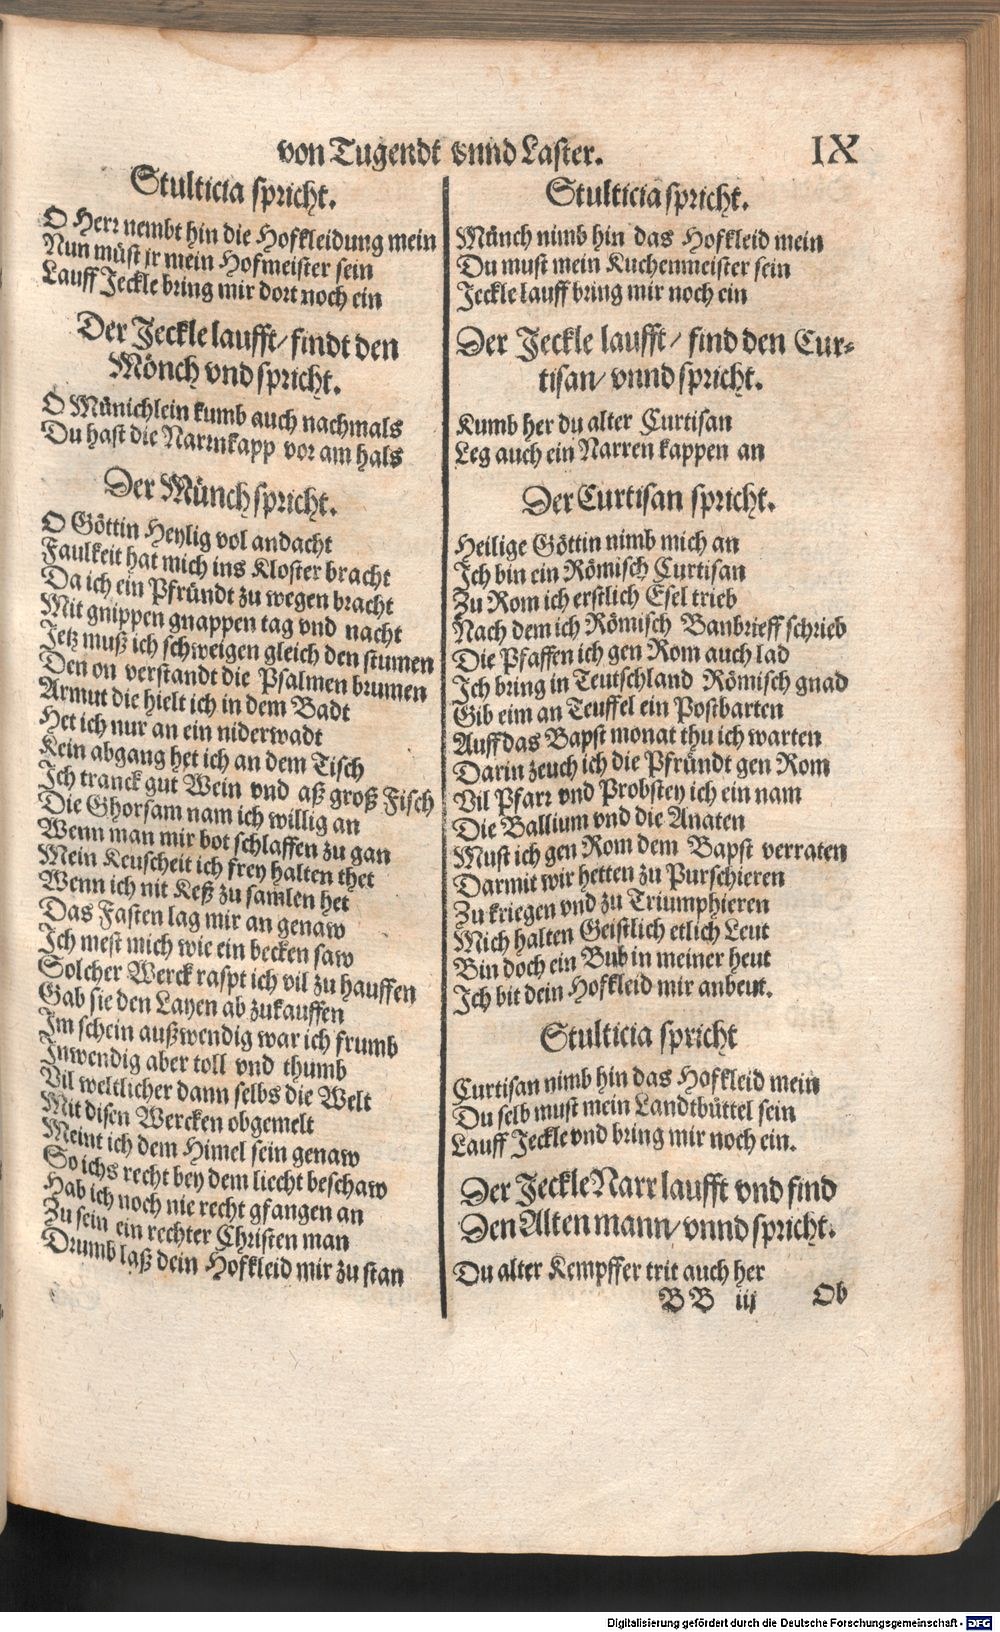 von Tugendt vnnd Laster.
IX
Stulticia spricht.
O Herr nembt hin die Hofkleidung mein
Nun müst jr mein Hofmeister sein
Lauff Jeckle bring mir dort noch ein
Der Jeckle laufft/ findt den
Mönch vnd spricht.
O Münichlein kumb auch nachmals
Du hast die Narrnkapp vor am hals
Der Münch spricht.
O Göttin Heylig vol andacht
Faulkeit hat mich ins Kloster bracht
Da ich ein Pfründt zu wegen bracht
Mit gnippen gnappen tag vnd nacht
Jetz muß ich schweigen gleich den stumen
Den on verstandt die Psalmen brumen
Armut die hielt ich in dem Badt
Het ich nur an ein niderwadt
Kein abgang het ich an dem Tisch
Ich tranck gut Wein vnd aß groß Fisch
Die Ghorsam nam ich willig an
Wenn man mir bot schlaffen zu gan
Mein Keuscheit ich frey halten thet
Wenn ich nit Keß zu samlen het
Das Fasten lag mir an genaw
Ich mest mich wie ein becken saw
Solcher Werck raspt ich vil zu hauffen
Gab sie den Layen ab zukauffen
Im schein außwendig war ich frumb
Inwendig aber toll vnd thumb
Vil weltlicher dann selbs die Welt
Mit disen Wercken obgemelt
Meint ich dem Himel sein genaw
So ichs recht bey dem liecht beschaw
Hab ich noch nie recht gfangen an
Zu sein ein rechter Christen man
Drumb laß dein Hofkleid mir zu stan
Stulticia spricht.
Münch nimb hin das Hofkleid mein
Du must mein Kuchenmeister sein
Jeckle lauff bring mir noch ein
Der Jeckle laufft/ find den Cur-
tisan/ vnnd spricht.
Kumb her du alter Curtisan
Leg auch ein Narren kappen an
Der Curtisan spricht.
Heilige Göttin nimb mich an
Ich bin ein Römisch Curtisan
Zu Rom ich erstlich Esel trieb
Nach dem ich Römisch Banbrieff schrieb
Die Pfaffen ich gen Rom auch lad
Ich bring in Teutschland Römisch gnad
Gib eim an Teuffel ein Postbarten
Auff das Bapst monat thu ich warten
Darin zeuch ich die Pfründt gen Rom
Vil Pfarr vnd Probstey ich ein nam
Die Ballium vnd die Anaten
Must ich gen Rom dem Bapst verraten
Darmit wir hetten zu Purschieren
Zu kriegen vnd zu Triumphieren
Mich halten Geistlich etlich Leut
Bin doch ein Bub in meiner heut
Ich bit dein Hofkleid mir anbeut.
Stulticia spricht
Curtisan nimb hin das Hofkleid mein
Du selb must mein Landtbüttel sein
Lauff Jeckle vnd bring mir noch ein.
Der Jeckle Narr laufft vnd find
Den Alten mann/ vnnd spricht.
Du alter Kempffer trit auch her
BB iij
Ob
Digitalisierung gefördert durch die Deutsche Forschungsgemeinschaft - DFG